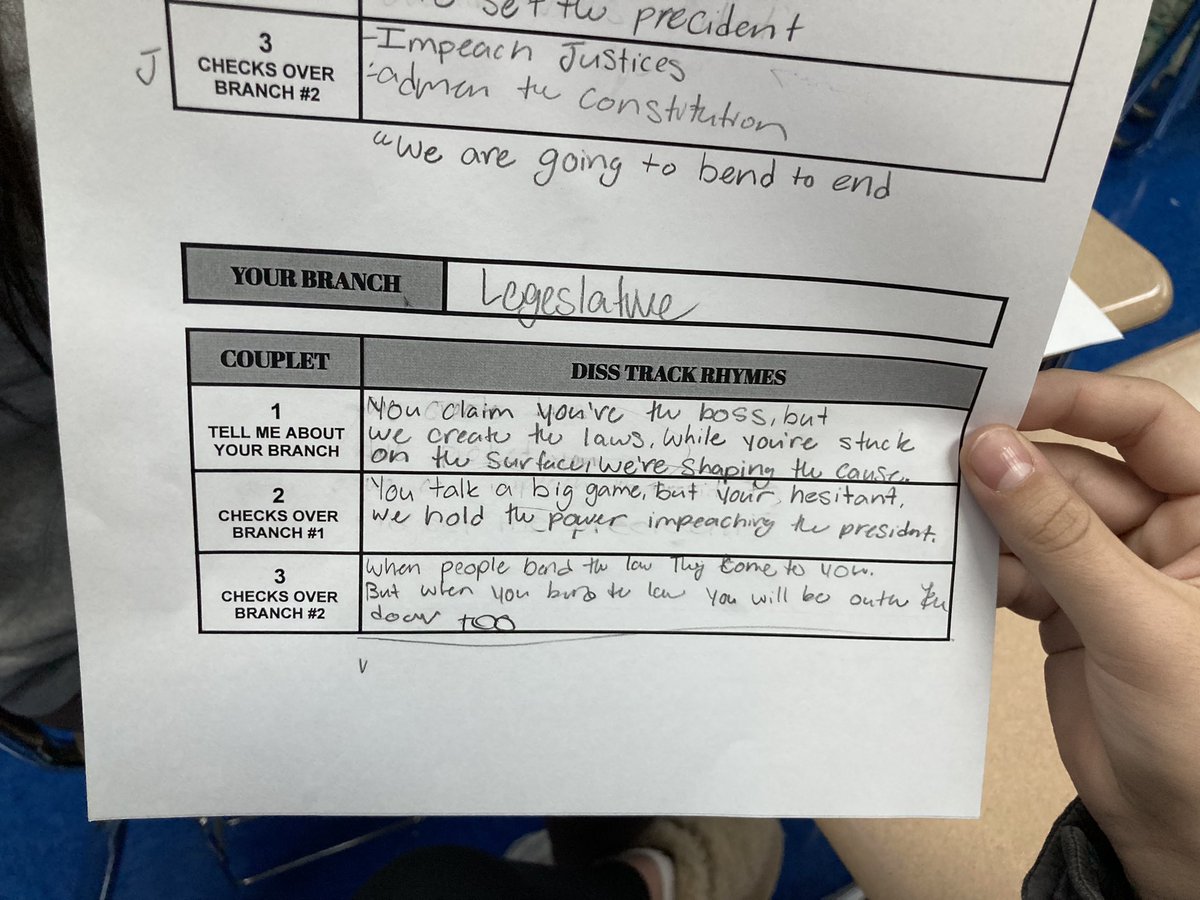 set the precident
J
3
CHECKS OVER
BRANCH #2
-Impeach Justices
-admen the constitution
"We are going to bend to end
YOUR BRANCH
Legeslative
COUPLET
DISS TRACK RHYMES
1
TELL ME ABOUT
YOUR BRANCH
You claim you're the boss, but
we create the laws, while you're stuck
on the surface, we're shaping the cause.
2
CHECKS OVER
BRANCH #1
You talk a big game, but your hesitant,
we hold the power impeaching the president.
3
CHECKS OVER
BRANCH #2
when people bend the law They come to you.
But when you the law you will be the
door too
V